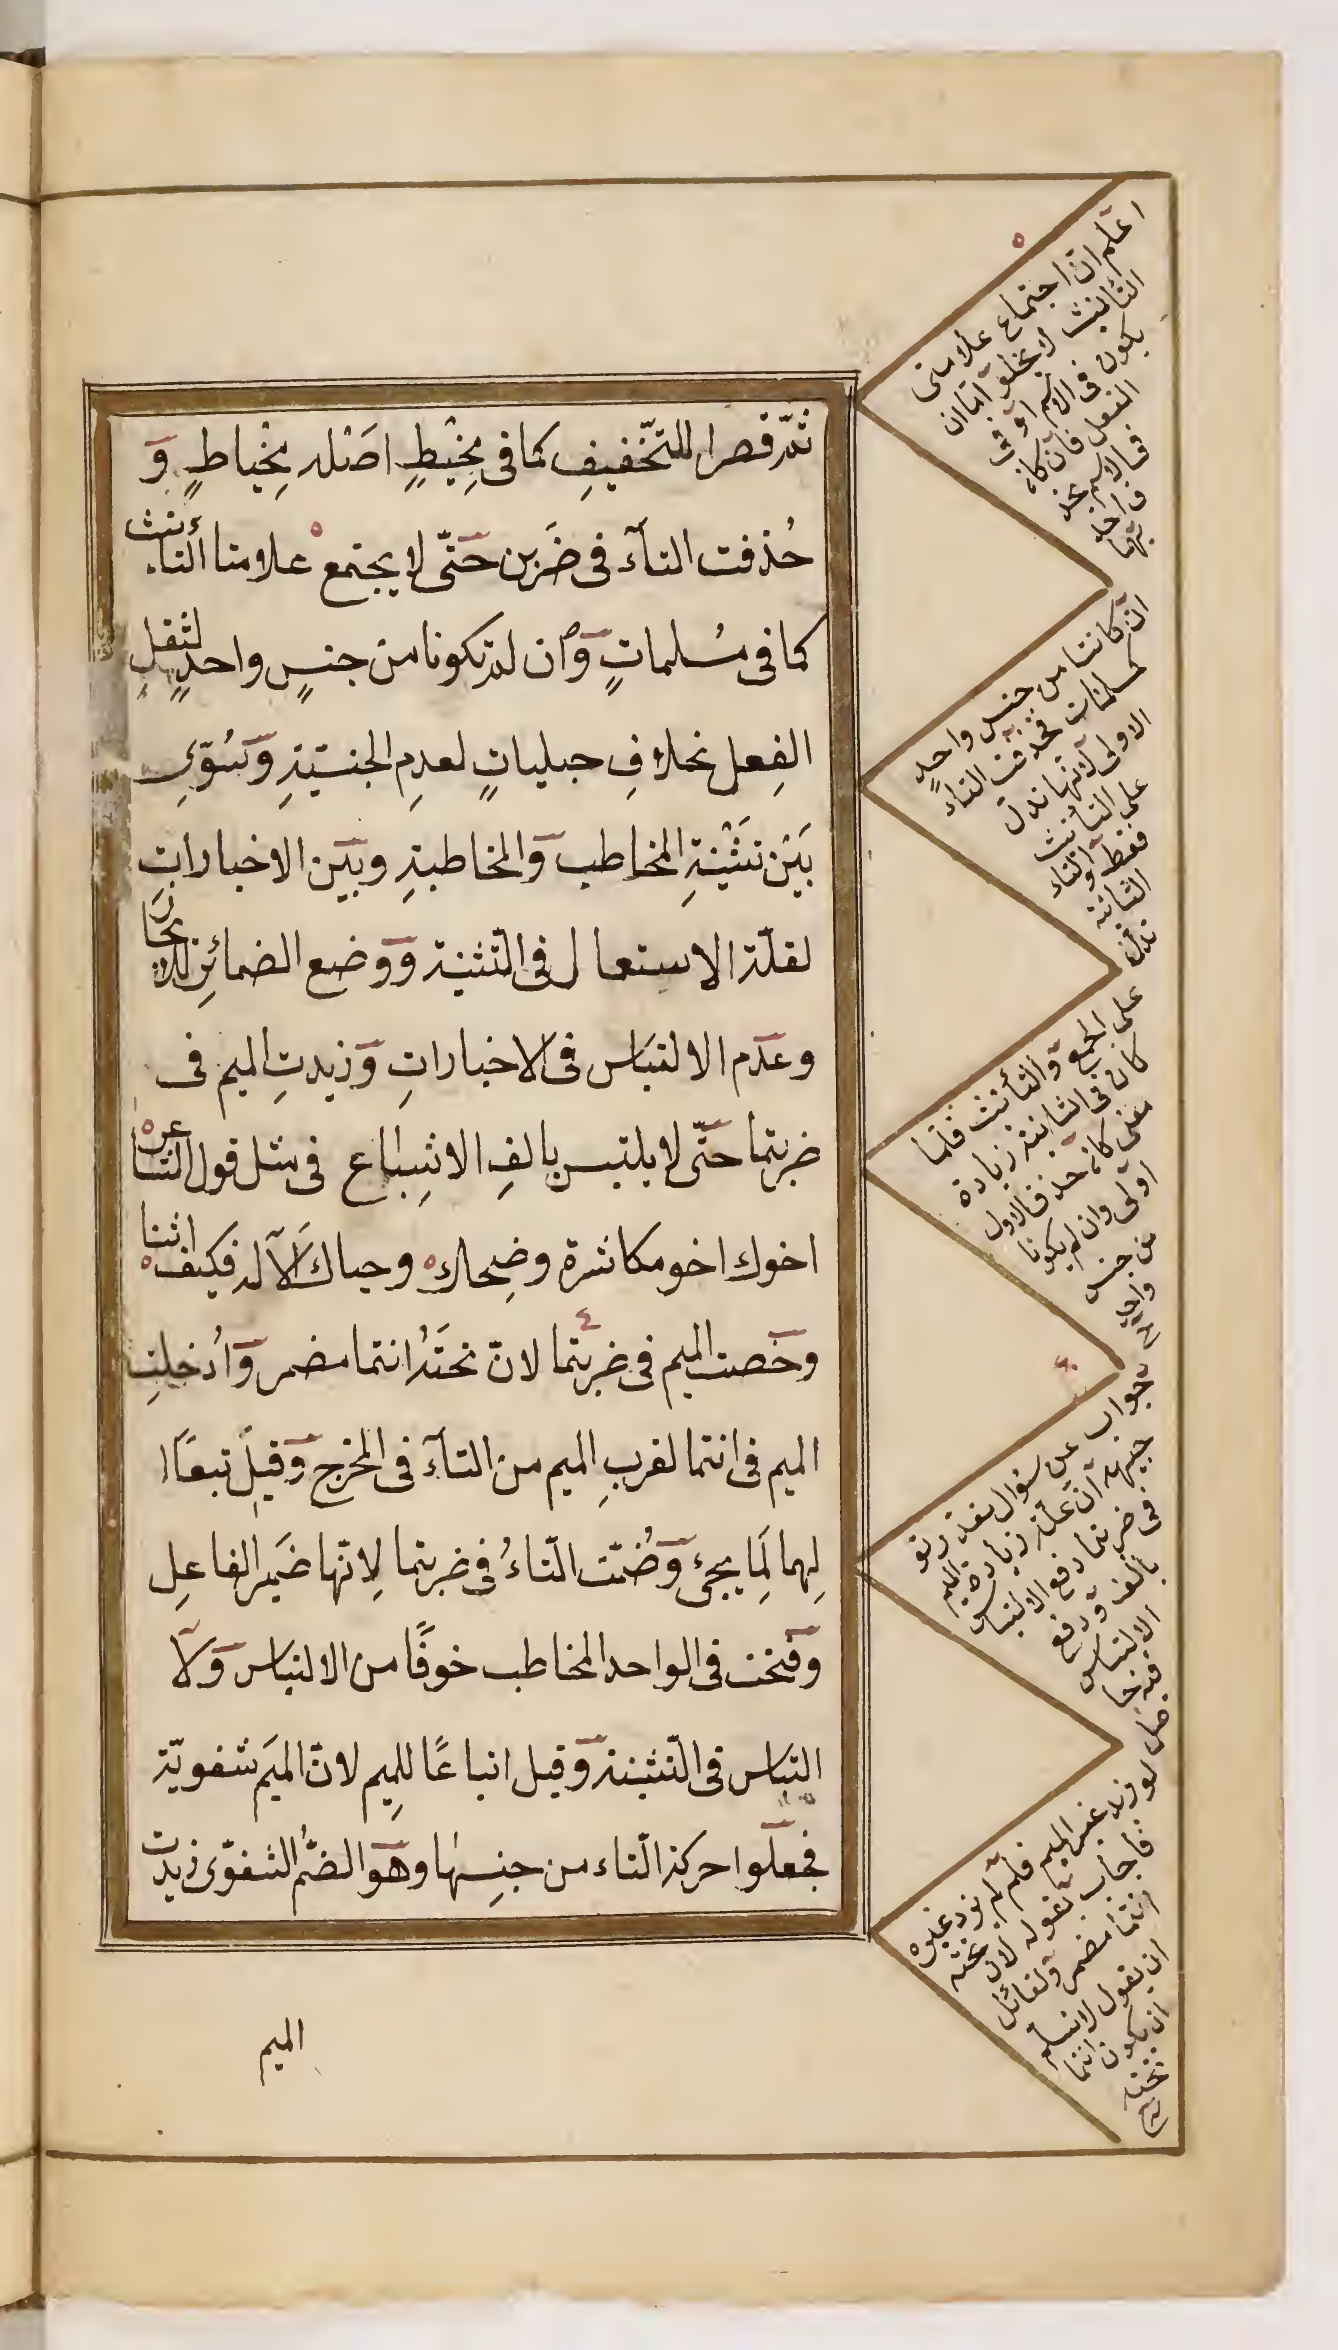 ثمّ قصرا للتّخفيفِ كما فى مِخْيَطٍ اصَتْله مِخْياطٍ وَ
حُذفت التآء فى ضَرَبن حَتّى لا يجتمع علامتا التأنيث
كما فى مُسلماتٍ وَان لم تكونا من جنسٍ واحدٍ لثقلِ
الفِعل بخلافِ حبلياتٍ لعدمِ الجنسيّةِ وَسُوّى
بَيْن تَثْنيةِ المخاطب وَالمخاطبةِ وبَين الاخباراتِ
لقلّة الاستعمال فى التّثنية وَوضع الضمائرِ للايجاز
وعدَم الالتباس فى الاخباراتِ وَزيدتِ الميم فى
ضربتما حَتّى لا يلتبس بالفِ الاشِباع فى مثل قول الشاعر
اخوك اخو مكاشرة وضِحاك وحياك الآله فكيف انتا
وخَصت الميم فى ضربتما لانّ تحتَه انتما مضمر وَاُدخلت
الميم فى انتما لقربِ الميم من التآء فى المخرج وَقيلَ تبعًا
لهما لِمَا يجئ وَضُمّت التّاءُ فى ضربتما لِانّها ضَمير الفاعلِ
وَفتحت فى الواحد المخاطب خوفًا من الالتباس وَلا
التباس فى التّثنية وَقيل اتباعًا للمِيم لانّ الميَم شفويّة
فجعلَوا حركة التّاء من جنسِهاوهَو الضمّ الشفوّى زيدت
الميم
اعلم ان اجتماع علامتى
التأنيث لا يخلو امّا ان
يكون فى الاسم او فى
الفعل فان كان
فى الاسم
ان كانتا من جنس واحدٍ
كمسلمات فحذفت التاء
الاولى لانّها تدل
على التأنيث
فقط والتاء
الثانية
تدل
على الجمع والتأنيث فلمّا
كان فى الثانية زيادة
معنى كان حذف الاول
اولى وان لم يكونا
من جنس
واحد
جواب عن سؤال مقدر تو
جيهه ان علّة زيادة الميم
فى ضربتما رفع الالتباس
بالف ورفع
الالتباس
لو زيد غير الميم فلم لم تزد غيره
فاجاب بقوله لان تحته
انتما مضمر ولقائل
ان يقول لا نسلم
ان يكون انتما
تحته